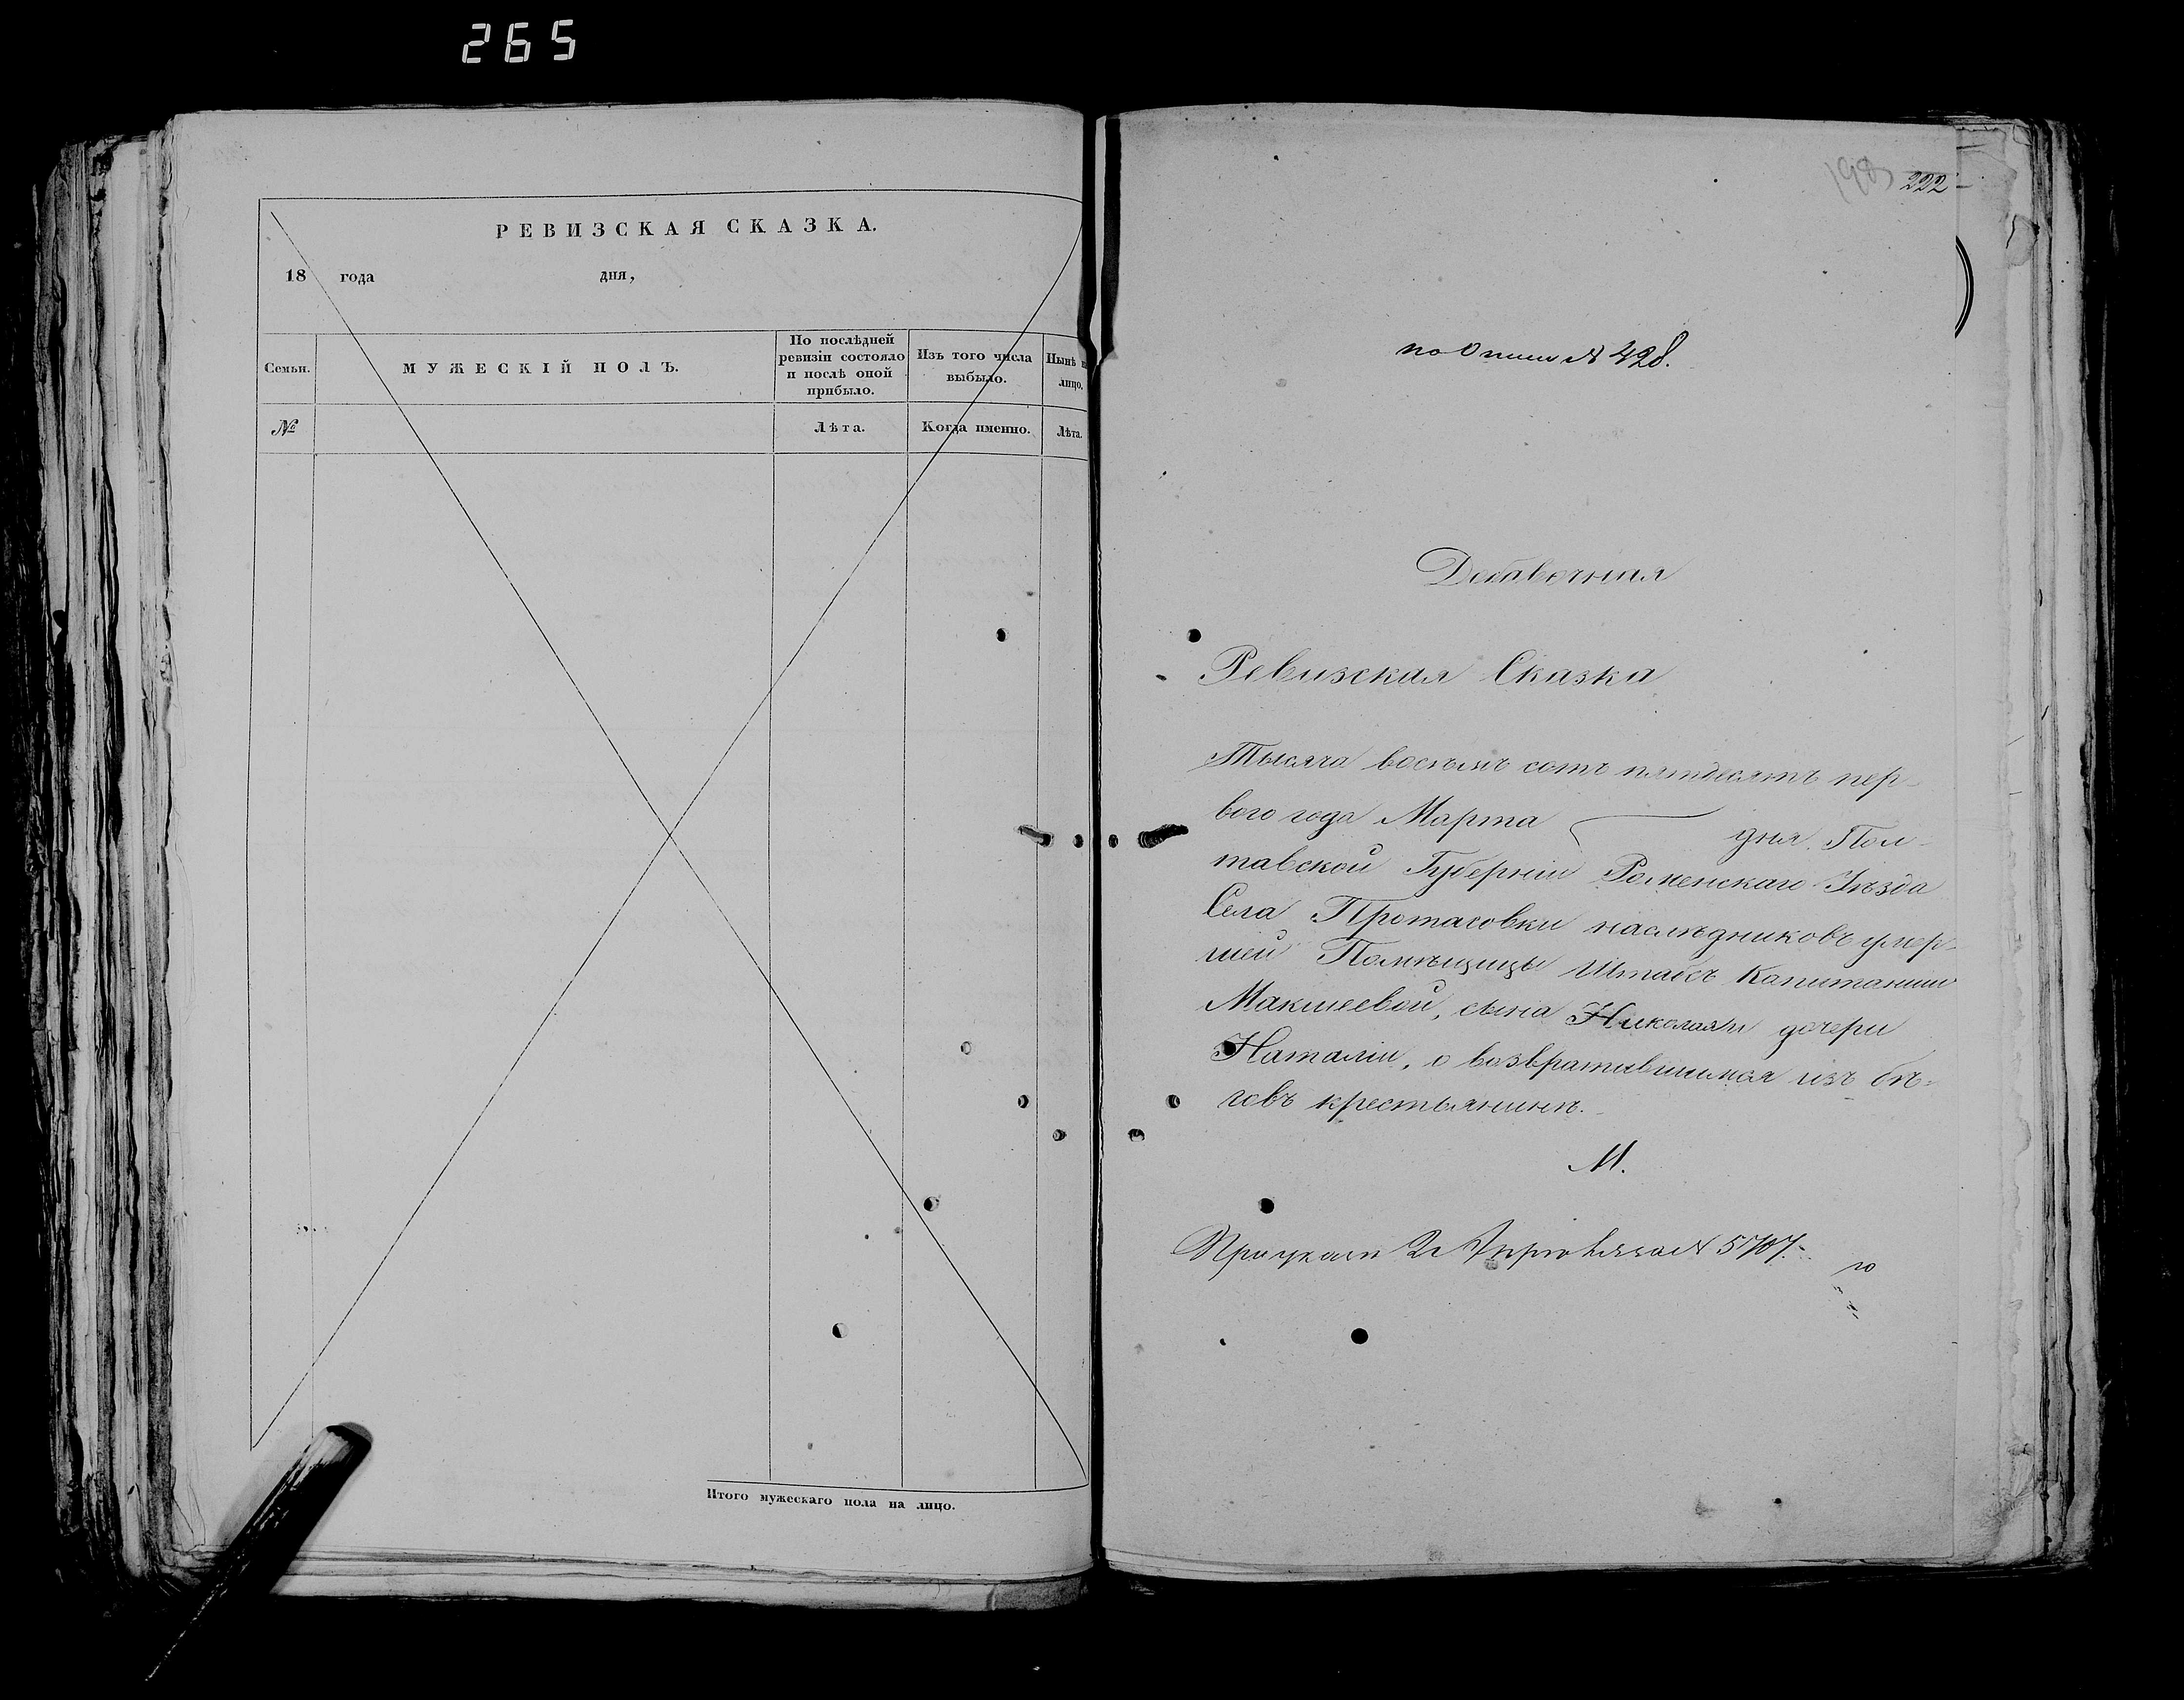 265
РЕВИЗСКАЯ СКАЗКА.
18 года дня,
Семьи.
МУЖЕСКІЙ ПОЛЪ.
По послѣдней
ревизіи состояло
и послѣ оной
прибыло.
Изъ того числа
выбыло.
Нынѣ н
лицо.
№
Лѣта.
Когда именно.
Лѣта.
Итого мужескаго пола на лицо.
198
222
по Описи № 428.
Добавочная
Ревизская Сказка
Тысяча восемь сотъ пятдесятъ пер-
вого года Марта дня Пол-
тавской Губерніи Роменскаго Уѣзда
Села Протасовки наслѣдниковъ умер-
шей Помѣщицы Штабсъ Капитанши
Макшеевой, сына Николая и дочери
Наталіи, о возвратившимся изъ бѣ-
говъ крестьянинѣ.
М.
№ 5707.